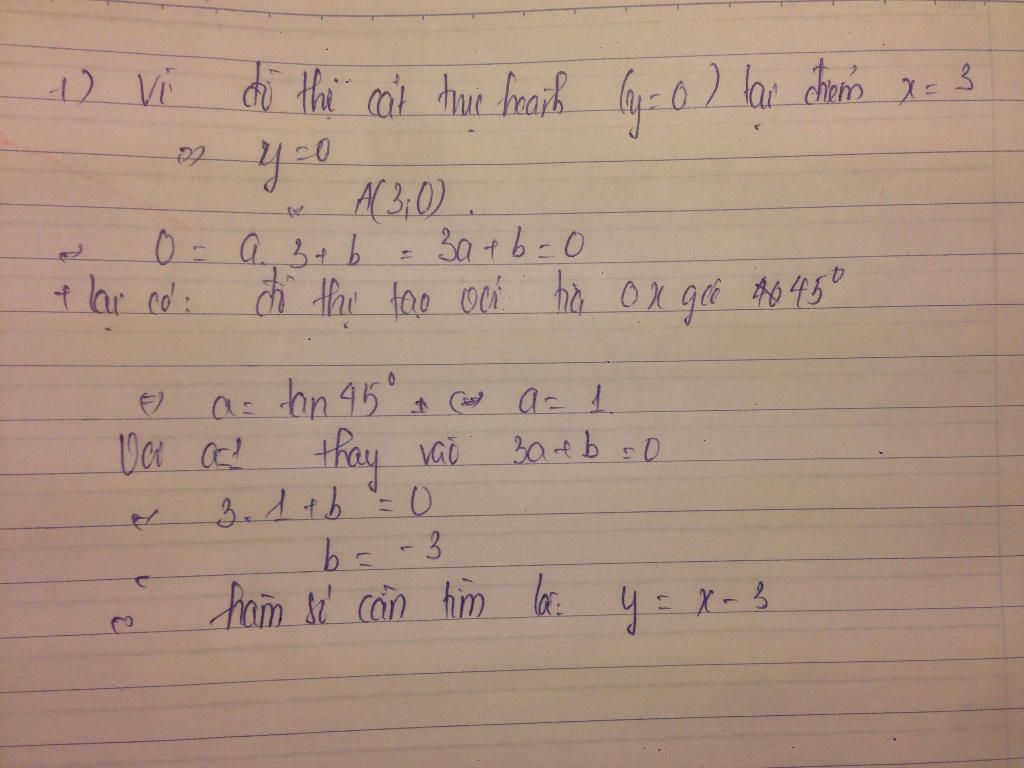 1) Vì đồ thị cắt trục hoành (y=0) tại điểm x=3
=> y=0
A(3;0).
0 = a.3+b = 3a+b=0
+ lại có: đồ thị tạo với tia Ox góc 45°
<=> a= tan 45° <=> a= 1
Với a=1 thay vào 3a+b=0
3.1+b =0
b= -3
hàm số cần tìm là: y = x-3